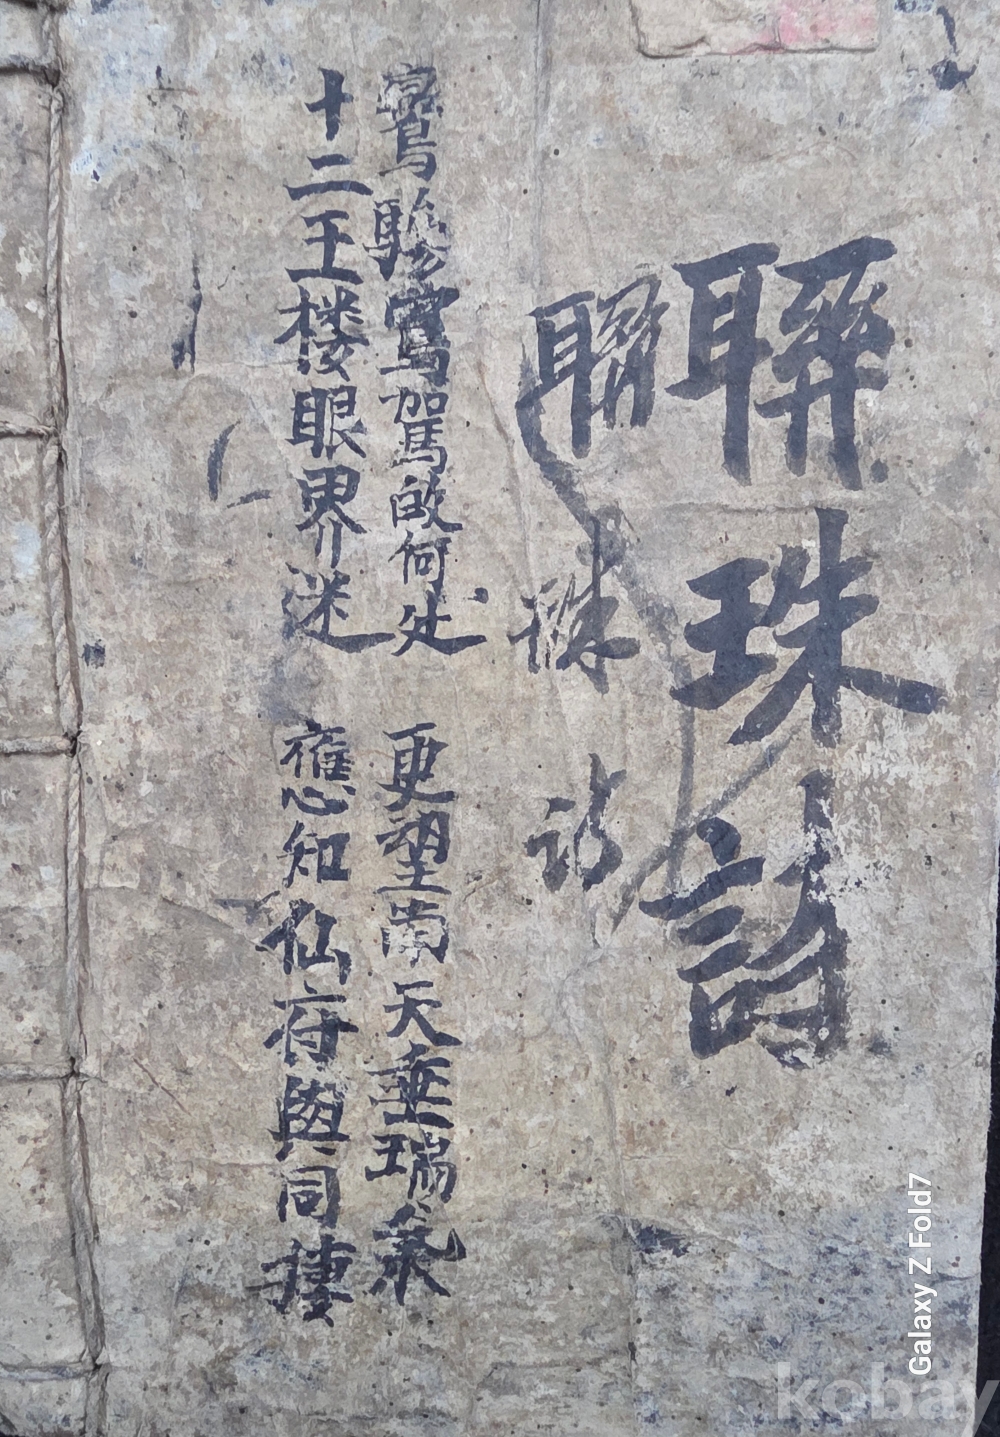 聯珠詩
聯珠詩
鸞驂鶴駕啟何处 更望南天垂瑞氣
十二王楼眼界迷 應知仙府與同棲
Galaxy Z Fold7
kobay